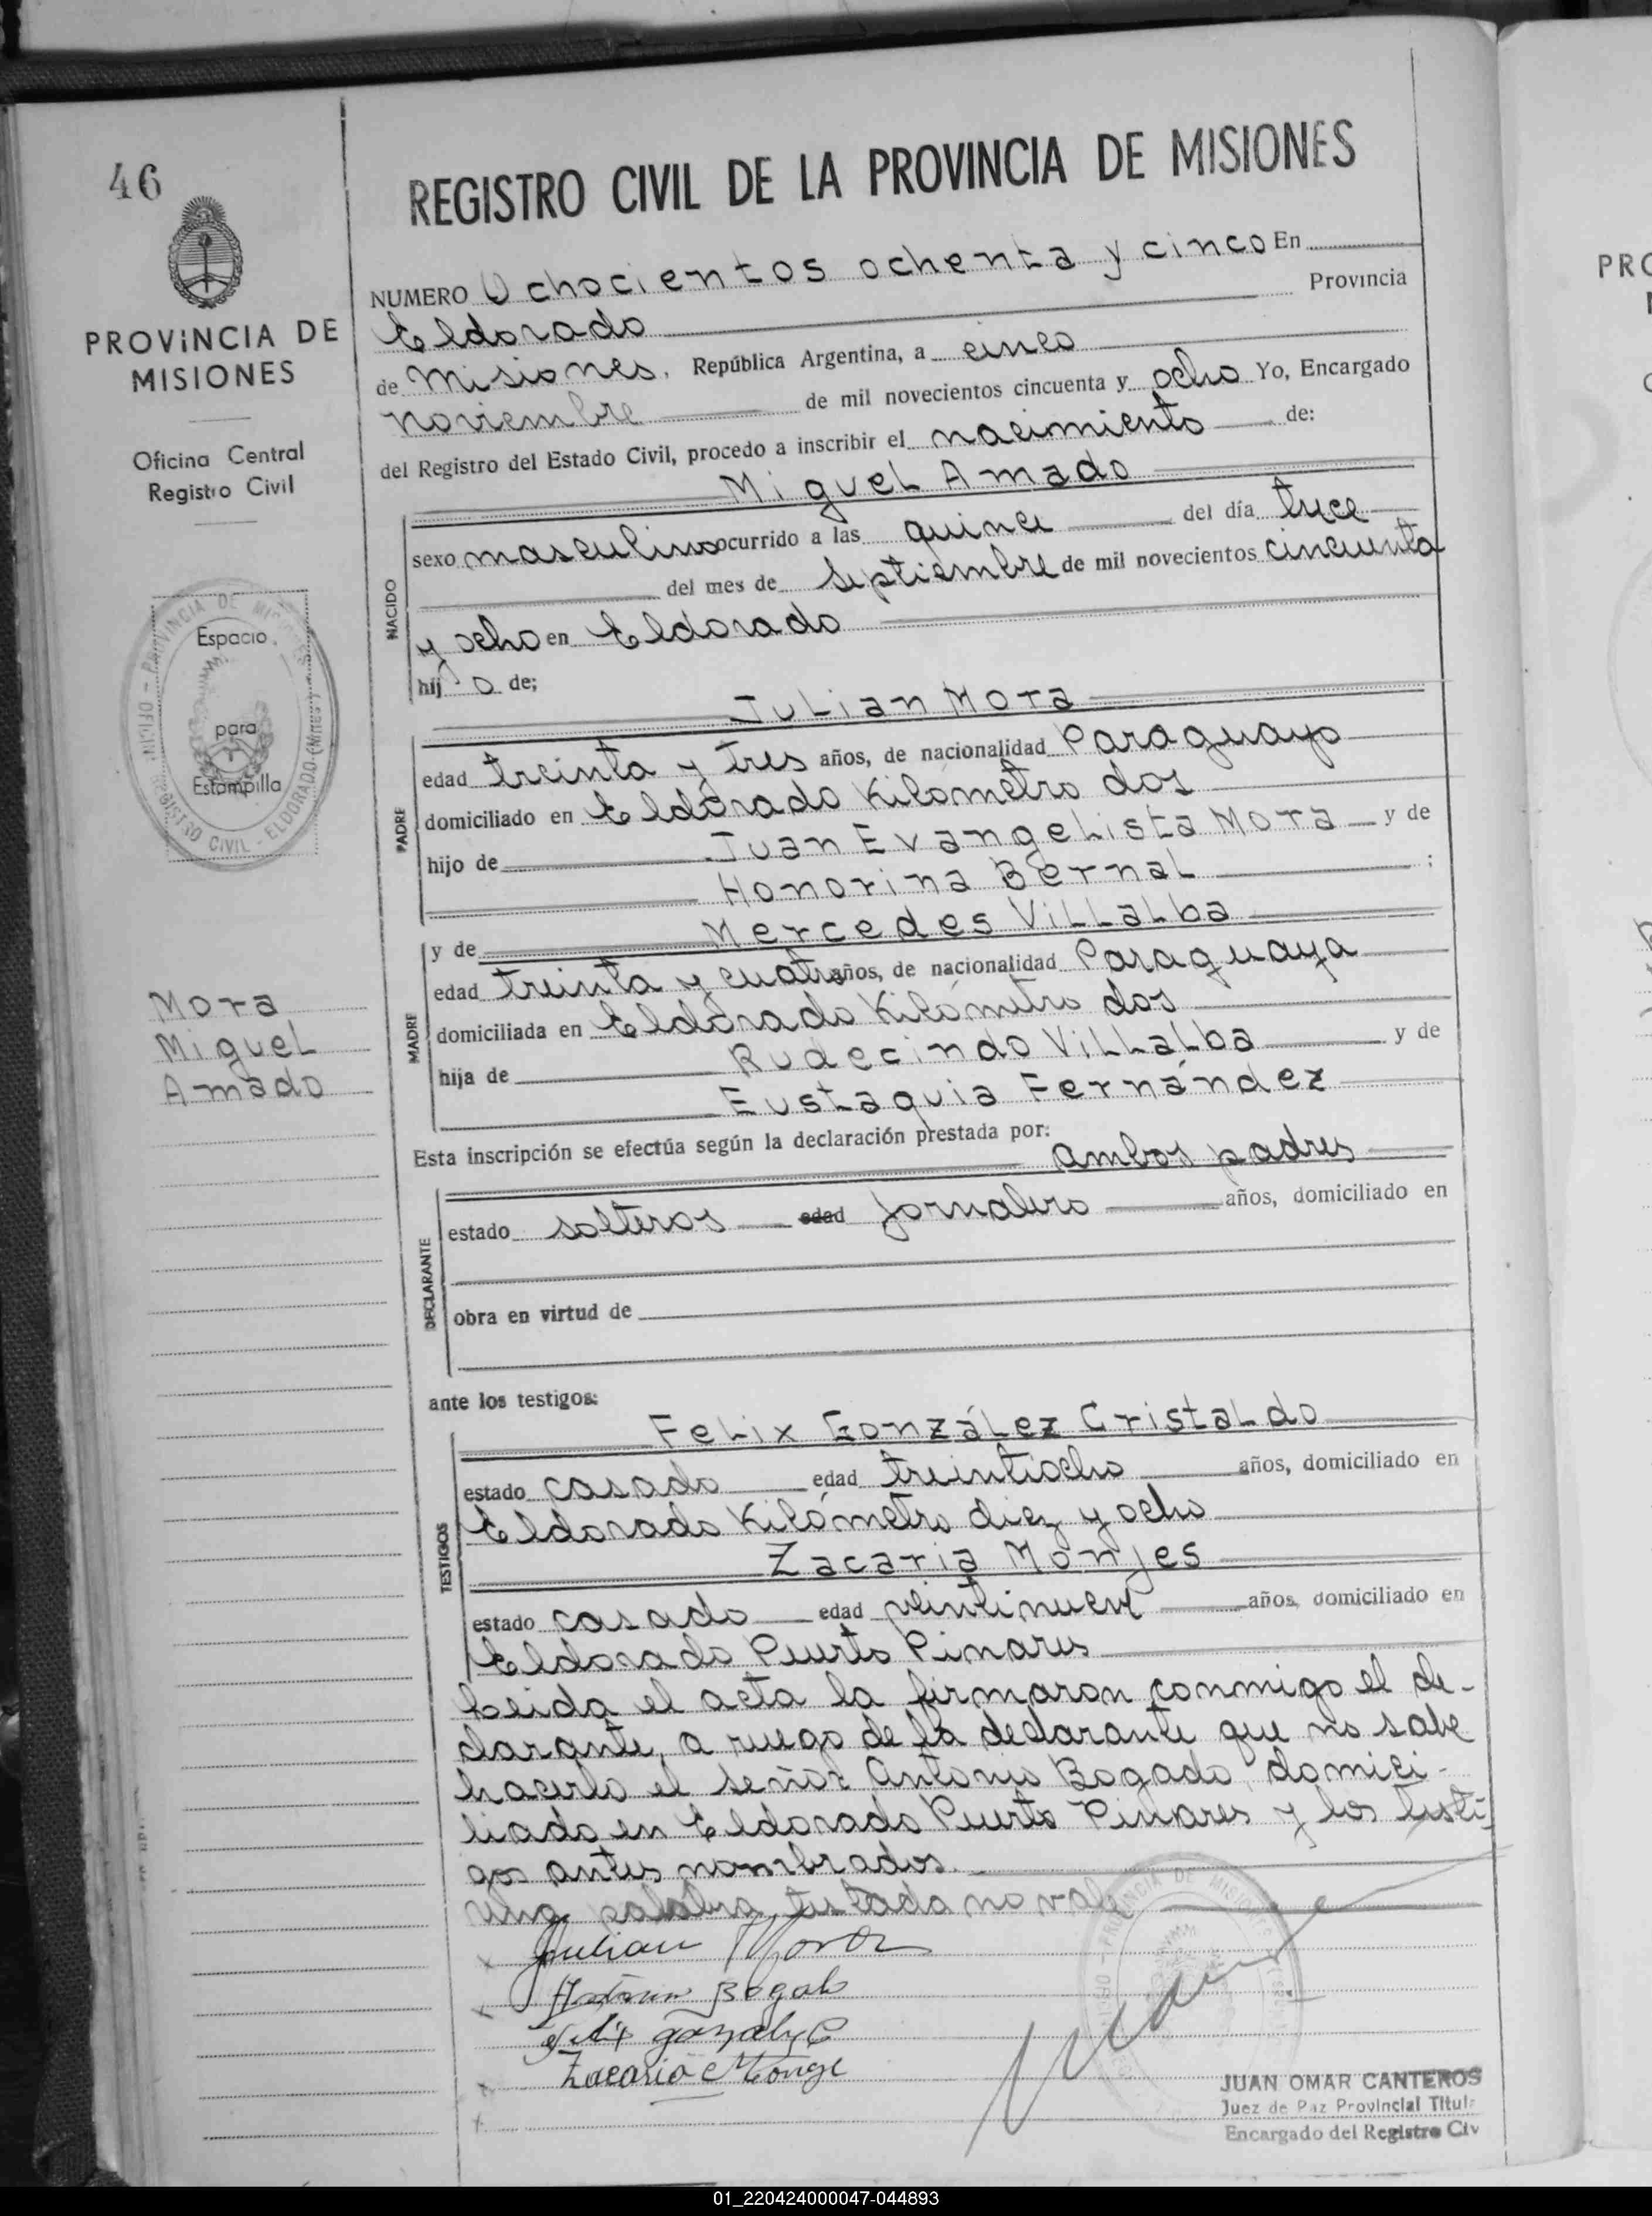 46
REGISTRO CIVIL DE LA PROVINCIA DE MISIONES
PROVINCIA DE
MISIONES
Oficina Central
Registro Civil
Espacio
para
Estampilla
Mora
Miguel
Amado
NUMERO Ochocientos ochenta y cinco En
Eldorado Provincia
de Misiones, República Argentina, a cinco
noviembre de mil novecientos cincuenta y ocho Yo, Encargado
del Registro del Estado Civil, procedo a inscribir el nacimiento de:
Miguel Amado
NACIDO
sexo masculino ocurrido a las quince del día trece
del mes de septiembre de mil novecientos cincuenta
y ocho en Eldorado
hij o de;
Julian Mora
PADRE
edad treinta y tres años, de nacionalidad Paraguayo
domiciliado en Eldorado Kilómetro dos
hijo de Juan Evangelista Mora y de
Honorina Bernal ;
y de Mercedes Villalba
MADRE
edad treinta y cuatro años, de nacionalidad Paraguaya
domiciliada en Eldorado Kilómetro dos
hija de Rudecindo Villalba y de
Eustaquia Fernández
Esta inscripción se efectúa según la declaración prestada por:
ambos padres
DECLARANTE
estado solteros edad Jornalero años, domiciliado en
obra en virtud de
ante los testigos:
Felix González Cristaldo
TESTIGOS
estado casado edad treintiocho años, domiciliado en
Eldorado Kilómetro diez y ocho
Zacaria Monjes
estado casado edad veintinueve años, domiciliado en
Eldorado Puerto Pinares
Leida el acta la firmaron conmigo el de-
clarante, a ruego de la declarante que no sabe
hacerlo el señor Antonio Bogado domici-
liado en Eldorado Puerto Pinares y los testi
gos antes nombrados.
Una palabra testada no vale
Julian Mora
Antonio Bogado
Felix Gonzalez C
Zacaria Monge
JUAN OMAR CANTEROS
Juez de Paz Provincial Titula
Encargado del Registro Civ
01_220424000047-044893